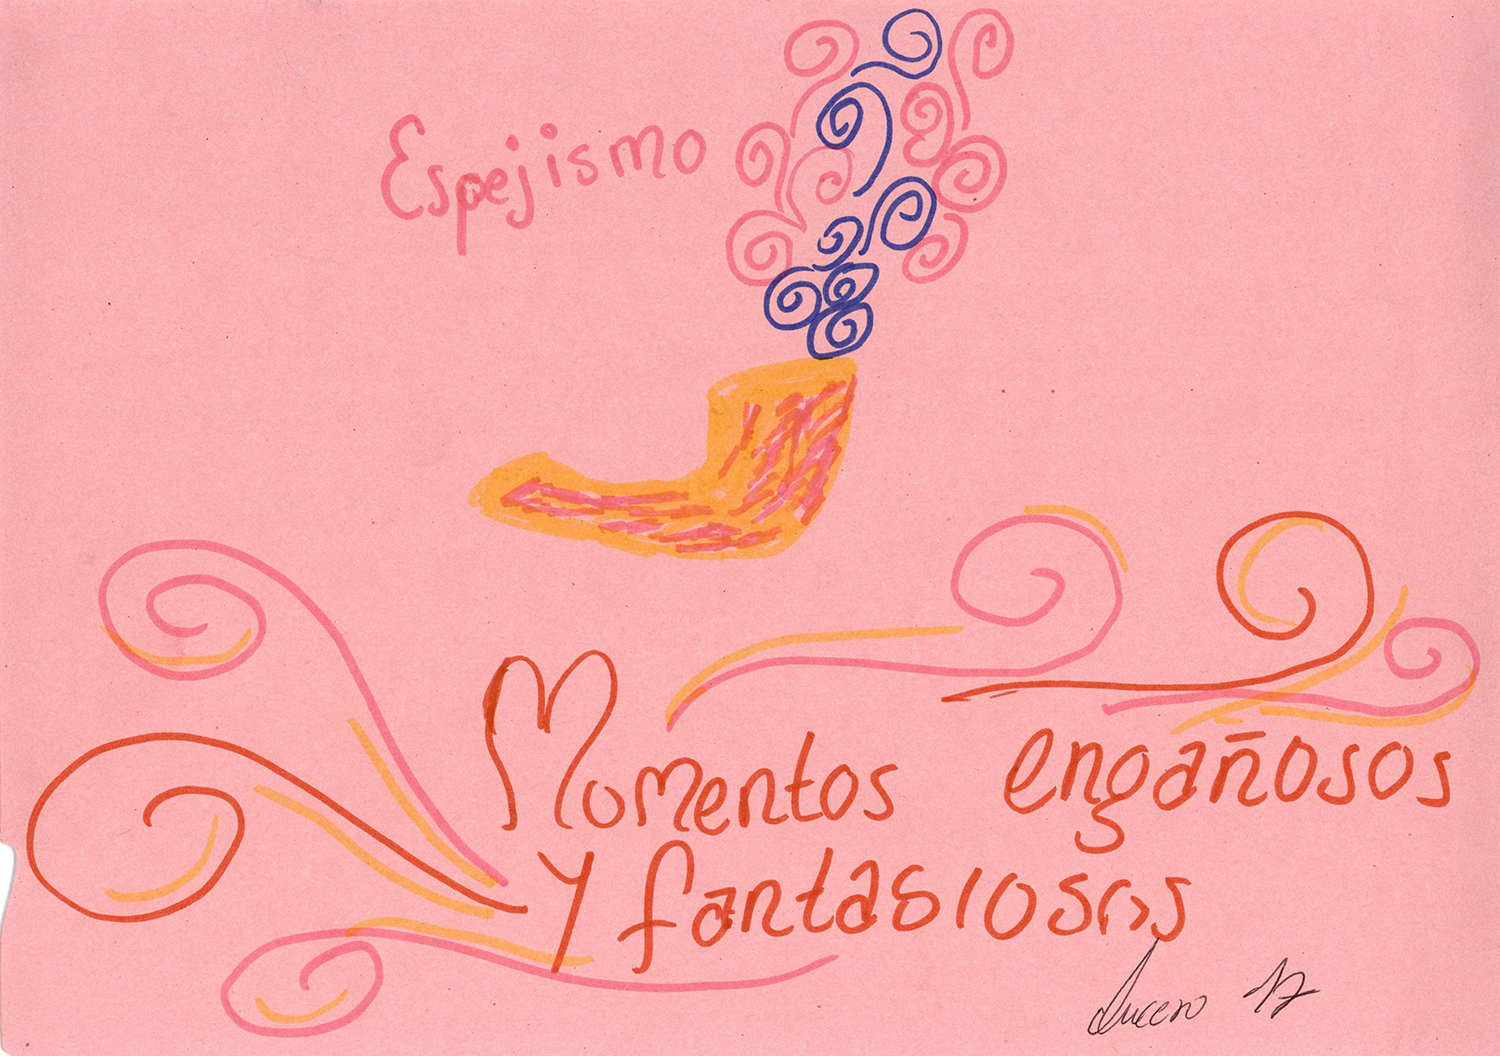 Espejismo
Momentos engañosos
y fantasiosos
Lucero 12